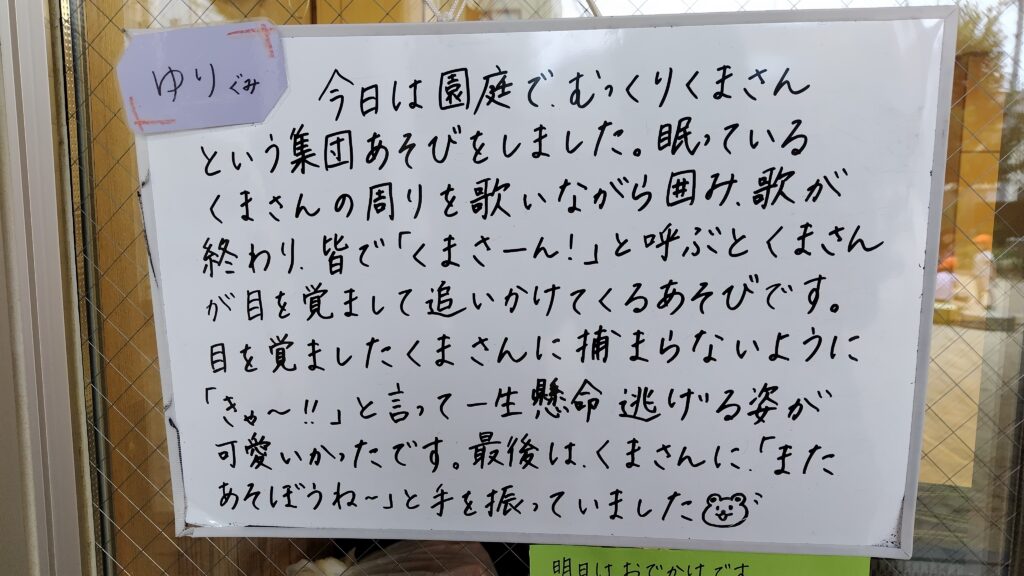 ゆりぐみ
今日は園庭で、むっくりくまさん
という集団あそびをしました。眠っている
くまさんの周りを歌いながら囲み、歌が
終わり、皆で「くまさーん!」と呼ぶとくまさん
が目を覚まして追いかけてくるあそびです。
目を覚ましたくまさんに捕まらないように
「きゃ〜!!」と言って一生懸命逃げる姿が
可愛いかったです。最後は、くまさんに、「また
あそぼうね〜」と手を振っていました
明日はおでかけです